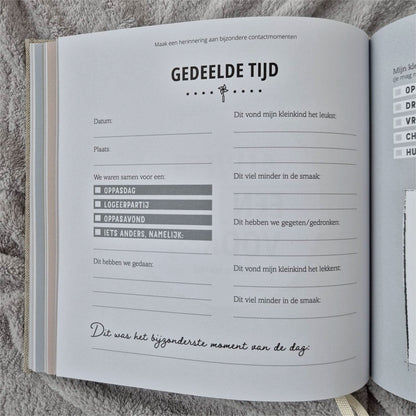 Maak een herinnering aan bijzondere contactmomenten
GEDEELDE TIJD
Datum:
Plaats:
We waren samen voor een:
OPPASDAG
LOGEERPARTIJ
OPPASAVOND
IETS ANDERS, NAMELIJK:
Dit hebben we gedaan:
Dit vond mijn kleinkind het leukst:
Dit viel minder in de smaak:
Dit hebben we gegeten/gedronken:
Dit vond mijn kleinkind het lekkerst:
Dit viel minder in de smaak:
Dit was het bijzonderste moment van de dag:
Mijn klei
(je mag
OP
DR
VR
CH
HU